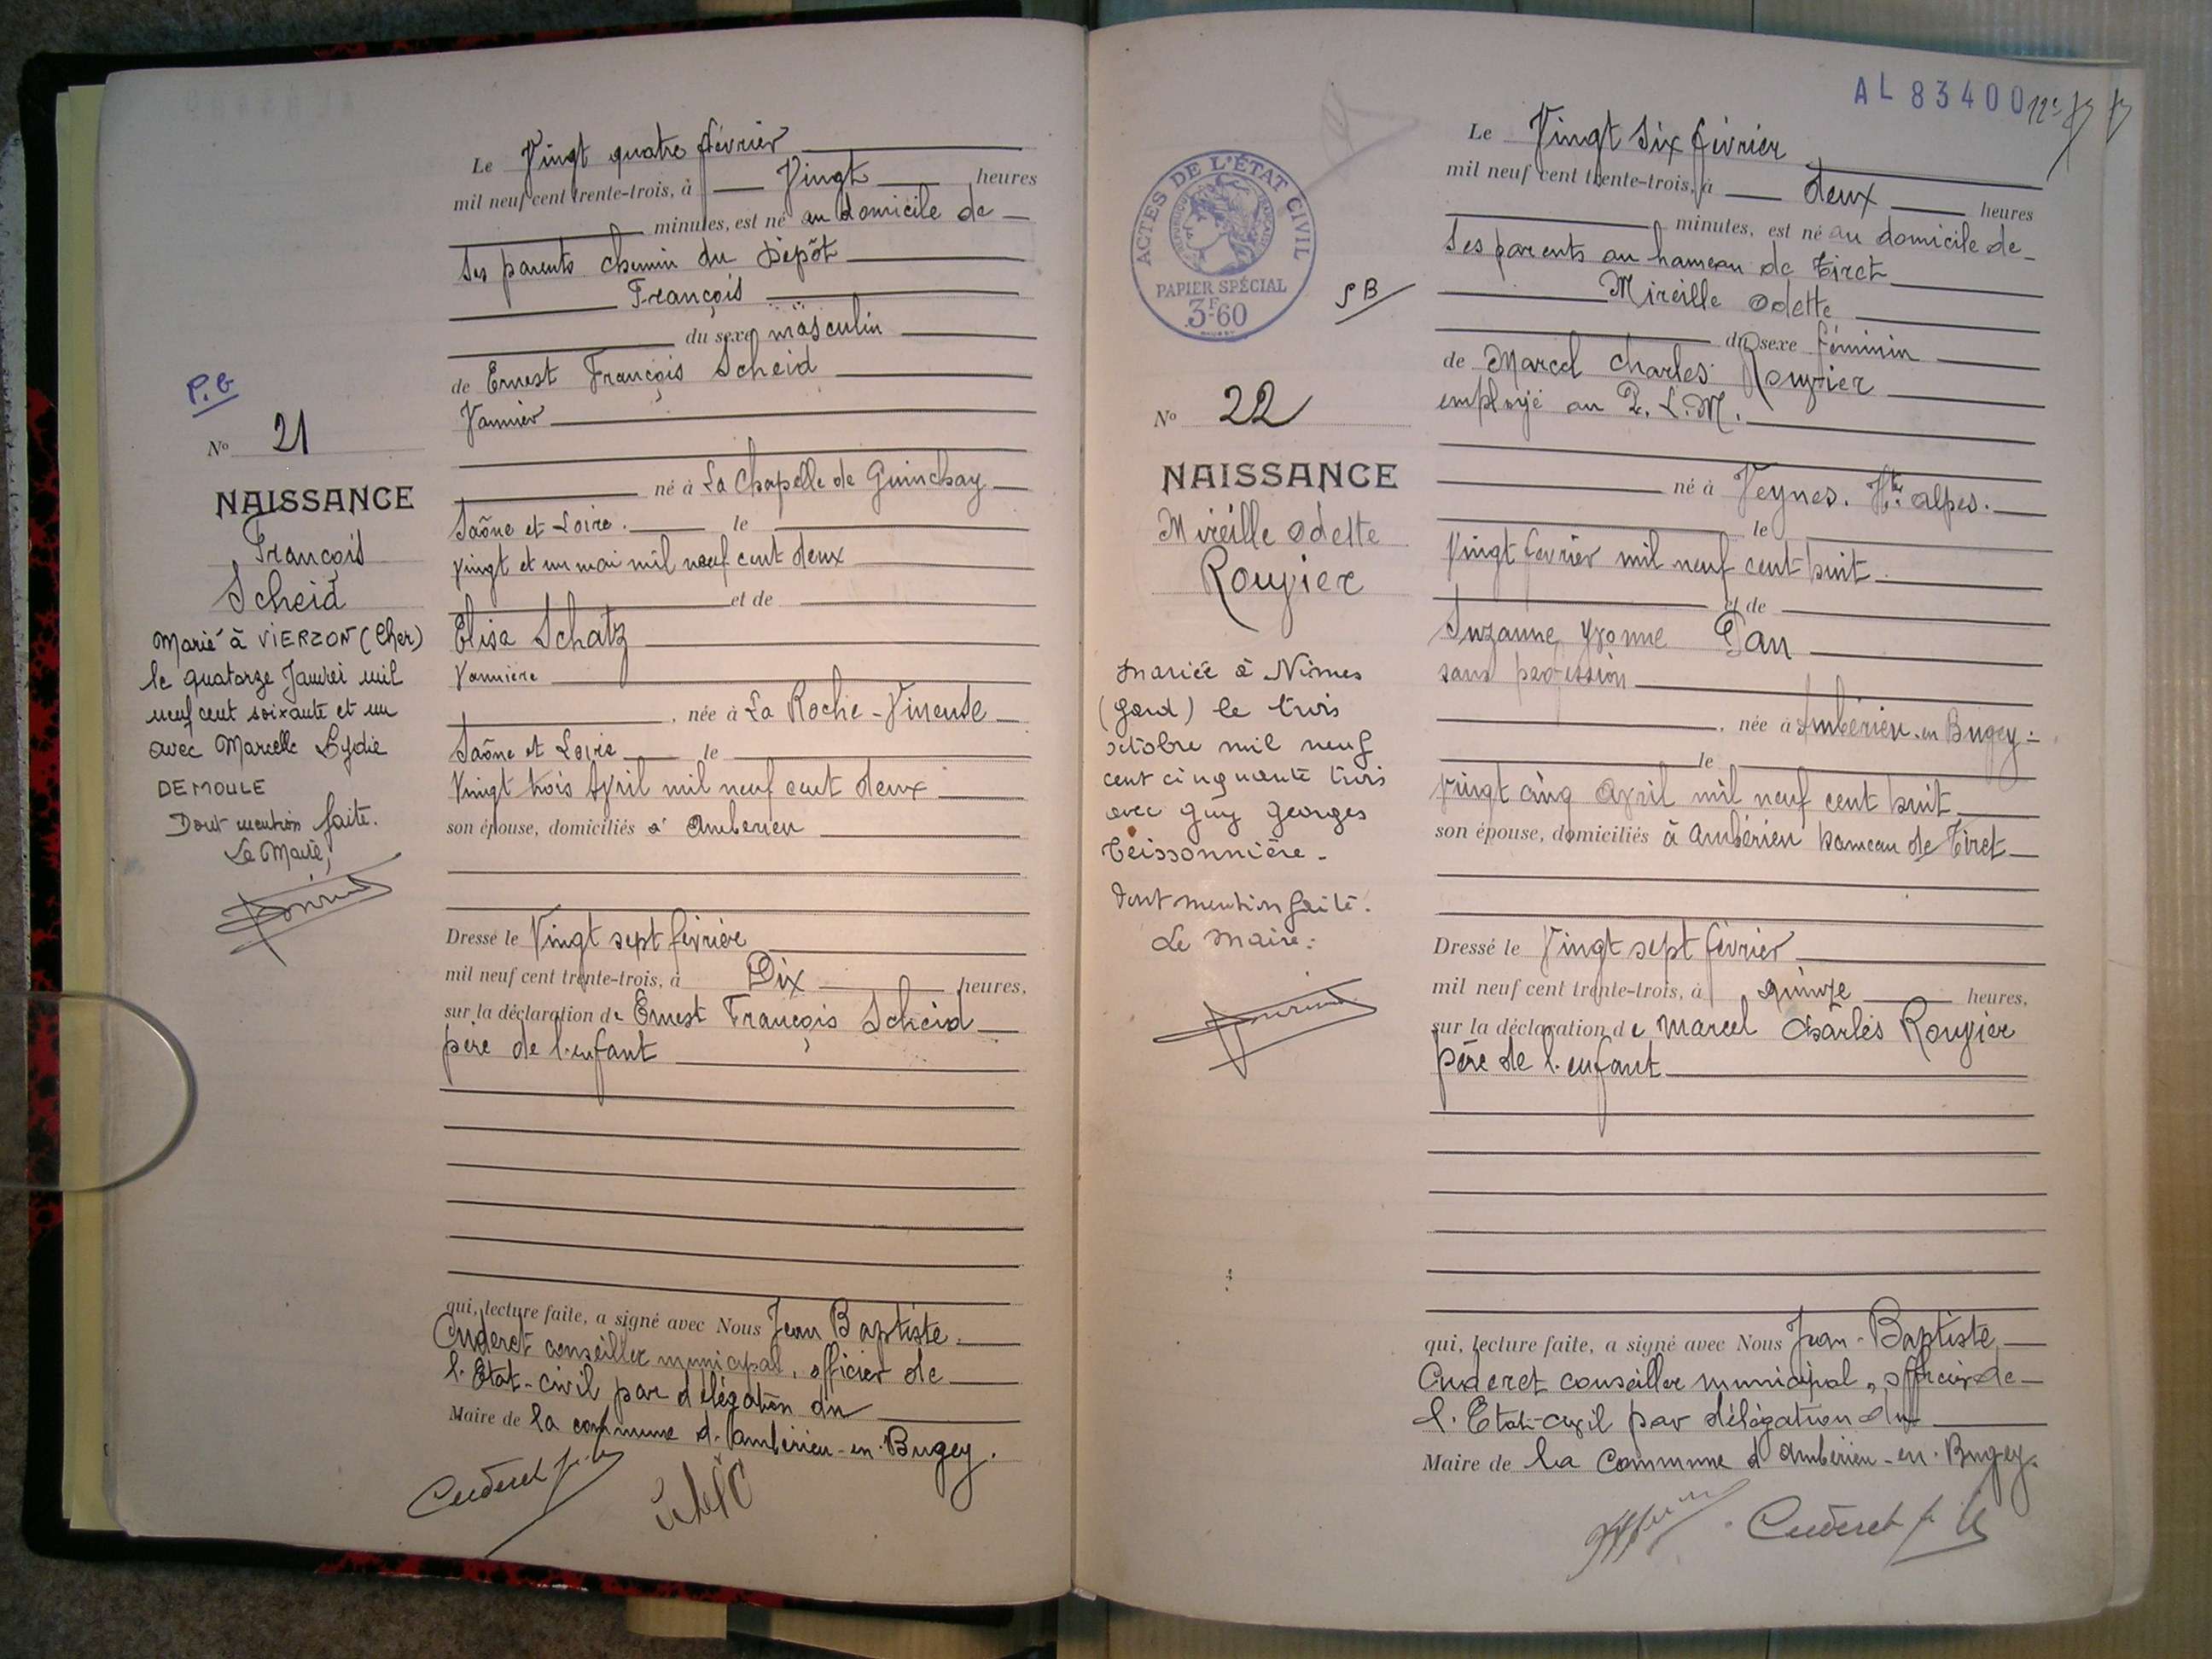 P. G
No 21
NAISSANCE
François
Scheid
Marié à VIERZON (Cher)
le quatorze Janvier mil
neuf cent soixante et un
avec Marcelle Lydie
DEMOULE
Dont mention faite.
Le Maire,
Le Vingt quatre février
mil neuf cent trente-trois, à Vingt heures
minutes, est né au domicile de
ses parents chemin du Dépôt
François
du sexe masculin
de Ernest François Scheid
Vannier
né à La Chapelle de Guinchay
Saône et Loire. le
vingt et un mai mil neuf cent deux
et de
Elisa Schatz
Vannière
, née à La Roche-Vineuse
Saône et Loire le
Vingt trois Avril mil neuf cent deux
son épouse, domiciliés à Ambérieu
Dressé le Vingt sept février
mil neuf cent trente-trois, à Dix heures,
sur la déclaration de Ernest François Scheid
père de l'enfant
qui, lecture faite, a signé avec Nous Jean Baptiste
Cuderet conseiller municipal, officier de
l'Etat-civil par délégation du
Maire de la commune d'Ambérieu-en-Bugey.
Cuderet
AL 83400
ACTES DE L'ÉTAT CIVIL
PAPIER SPÉCIAL
3F60
S B
No 22
NAISSANCE
Mireille Odette
Rouvier
mariée à Nîmes
(Gard) le trois
octobre mil neuf
cent cinquante trois
avec Guy Georges
Teissonnière.
Dont mention faite.
Le Maire:
Le Vingt six février
mil neuf cent trente-trois, à deux heures
minutes, est né au domicile de
ses parents au hameau de Tiret
Mireille Odette
du sexe féminin
de Marcel Charles Rouvier
employé au P. L. M.
né à Veynes. Htes alpes.
le
Vingt février mil neuf cent huit
et de
Suzanne Yvonne Pan
sans profession
, née à Ambérieu-en Bugey
le
vingt cinq avril mil neuf cent huit
son épouse, domiciliés à Ambérieu hameau de Tiret
Dressé le Vingt sept février
mil neuf cent trente-trois, à quinze heures,
sur la déclaration de Marcel Charles Rouvier
père de l'enfant
qui, lecture faite, a signé avec Nous Jean-Baptiste
Cuderet conseiller municipal, officier de
l'Etat-civil par délégation du
Maire de la Commune d'Ambérieu-en-Bugey.
Cuderet